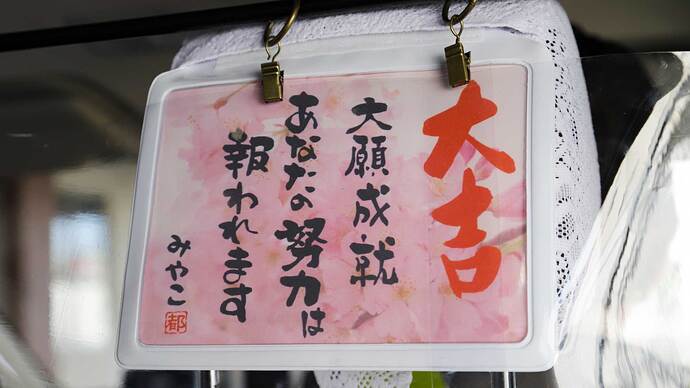 大吉
大願成就
あなたの努力は
報われます
みやこ
都